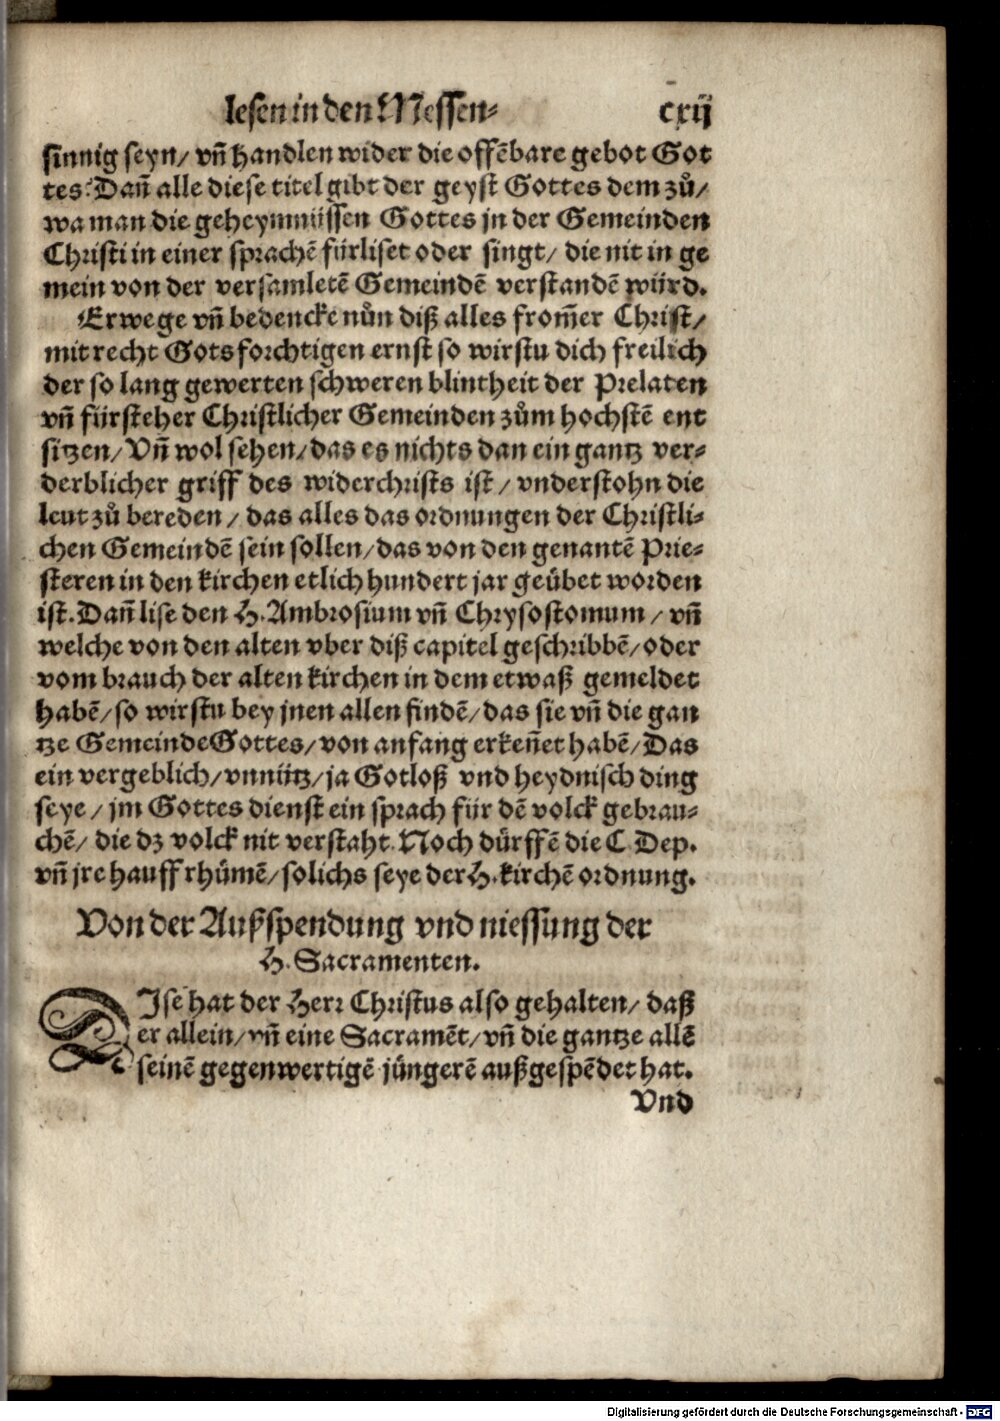 lesen in den Messen⸗ cxij
sinnig seyn/ vñ handlen wider die offẽbare gebot Got
tes: Dañ alle diese titel gibt der geyst Gottes dem zů/
wa man die geheymnüssen Gottes jn der Gemeinden
Christi in einer sprachẽ fürliset oder singt/ die nit in ge
mein von der versamletẽ Gemeindẽ verstandẽ würd.
Erwege vñ bedencke nůn diß alles from̃er Christ/
mit recht Gotsforchtigen ernst so wirstu dich freilich
der so lang gewerten schweren blintheit der Prelaten
vñ fürsteher Christlicher Gemeinden zům hochstẽ ent
sitzen/ Vñ wol sehen/ das es nichts dan ein gantz ver⸗
derblicher griff des widerchrists ist/ vnderstohn die
leut zů bereden/ das alles das ordnungen der Christli⸗
chen Gemeindẽ sein sollen/ das von den genantẽ Prie⸗
steren in den kirchen etlich hundert jar geübet worden
ist. Dañ lise den H. Ambrosium vñ Chrysostomum/ vñ
welche von den alten vber diß capitel geschribbẽ/ oder
vom brauch der alten kirchen in dem etwaß gemeldet
habẽ/ so wirstu bey jnen allen findẽ/ das sie vñ die gan
tze Gemeinde Gottes/ von anfang erkeñet habẽ/ Das
ein vergeblich/ vnnütz/ ja Gotloß vnd heydnisch ding
seye/ jm Gottes dienst ein sprach für dẽ volck gebrau⸗
chẽ/ die dz volck nit verstaht. Noch dürffẽ die C. Dep.
vñ jre hauff rhümẽ/ solichs seye der H. kirchẽ ordnung.
Von der Außspendung vnd niessung der
H. Sacramenten.
DJse hat der Herr Christus also gehalten/ daß
er allein/ vñ eine Sacramẽt/ vñ die gantze allẽ
seinẽ gegenwertigẽ jüngerẽ außgespẽdet hat.
Vnd
Digitalisierung gefördert durch die Deutsche Forschungsgemeinschaft - DFG